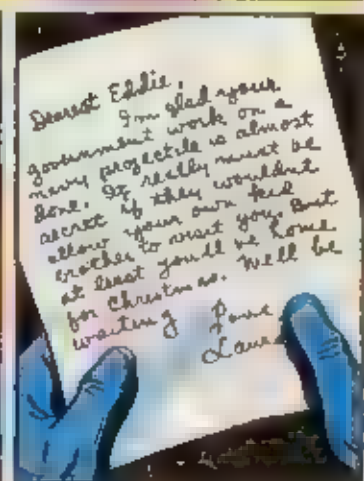 Dearest Eddie,
I'm glad your
government work on a
navy projectile is almost
done. It really must be
secret if they wouldn't
allow your own kid
brother to visit you. But
at least you'll be home
for Christmas. We'll be
waiting
Laura